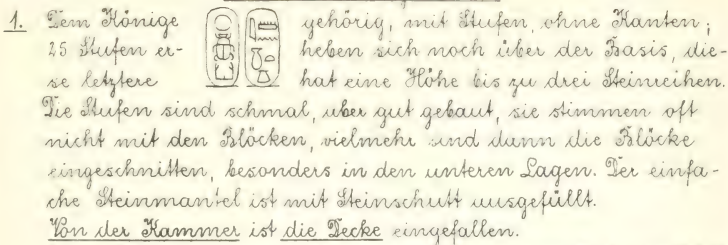 1. Dem Könige gehörig, mit Stufen, ohne Kanten;
25 Stufen er- heben sich noch über der Basis, die-
se letztere hat eine Höhe bis zu drei Steinreihen.
Die Stufen sind schmal, aber gut gebaut, sie stimmen oft
nicht mit den Blöcken, vielmehr sind dann die Blöcke
eingeschnitten, besonders in den unteren Lagen. Der einfa-
che Steinmantel ist mit Steinschutt ausgefüllt.
Von der Kammer ist die Decke eingefallen.